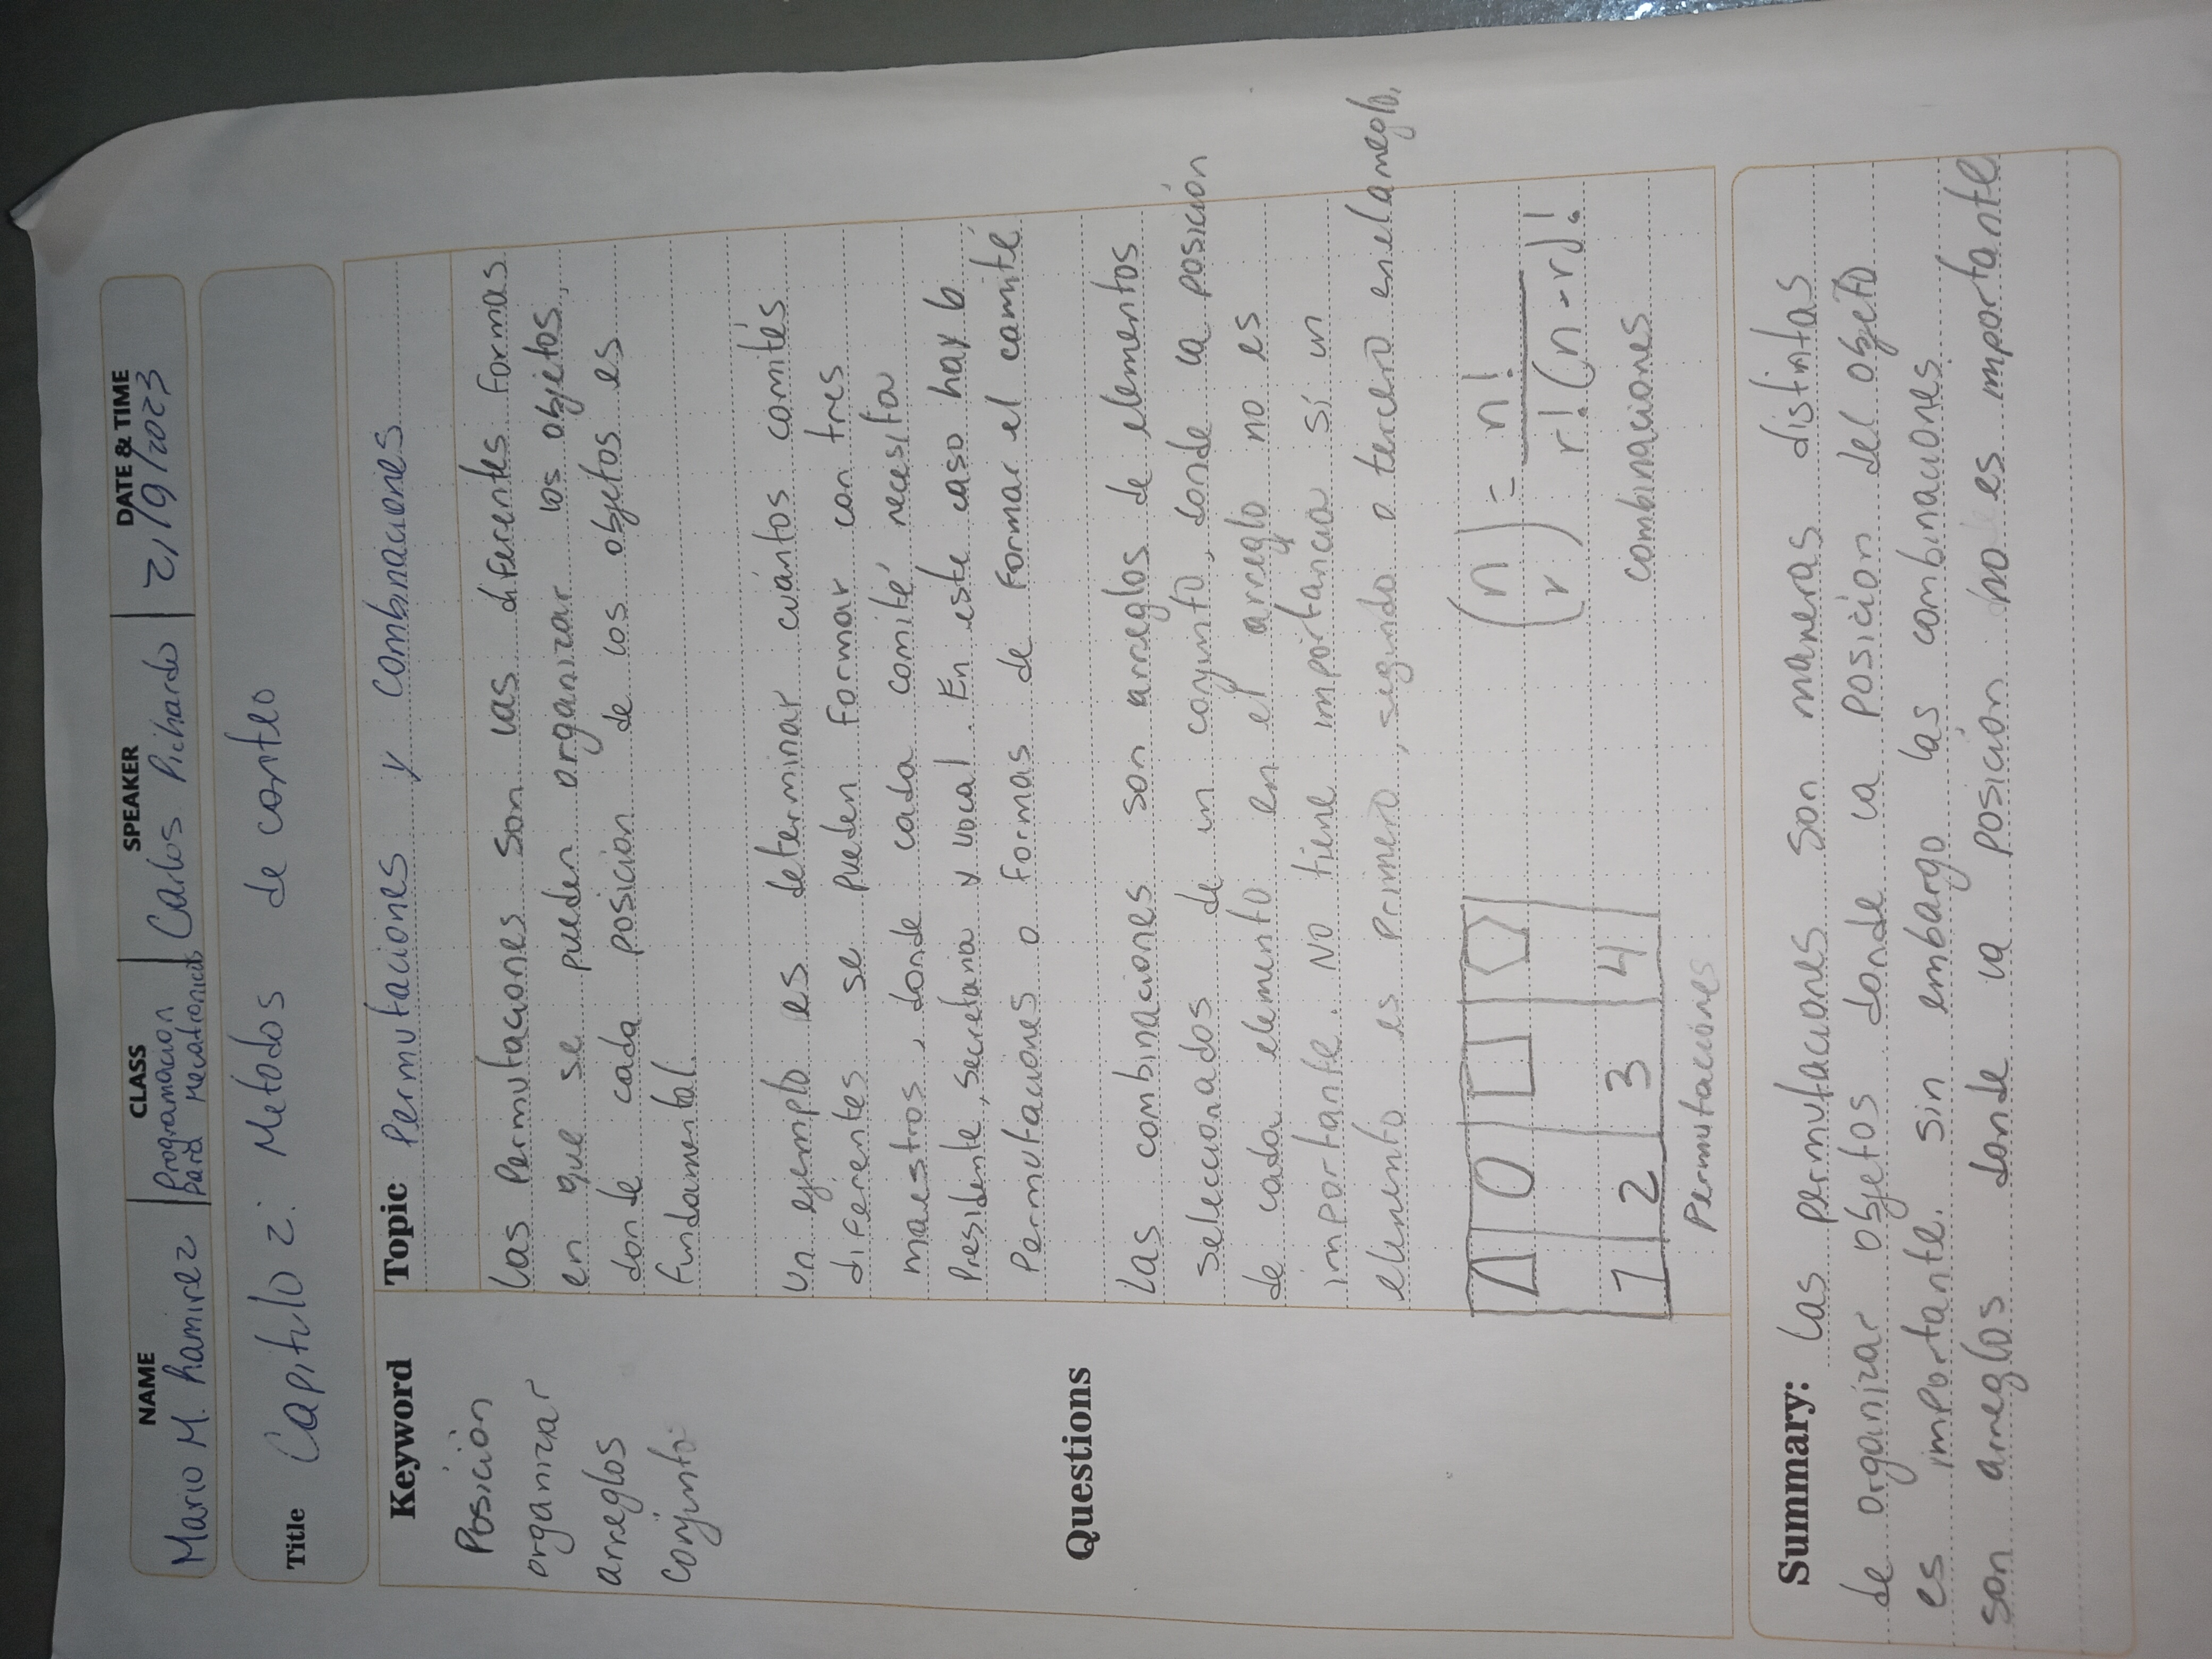 NAME CLASS SPEAKER DATE & TIME
Mario M. Ramirez Programacion para mecatronica Carlos Pichardo 21/9/2023
Title Capitulo 2: Metodos de conteo
Keyword
Posición
organizar
arreglos
conjunto
Questions
Topic Permutaciones y combinaciones
Las Permutaciones son las diferentes formas
en que se pueden organizar los objetos,
donde cada posicion de los objetos es
fundamental.
Un ejemplo es determinar cuántos comités
diferentes se pueden formar con tres
maestros, donde cada comité necesita
Presidente, secretaria y vocal. En este caso hay 6
Permutaciones o formas de formar el comité
Las combinaciones son arreglos de elementos
seleccionados de un conjunto, donde la posición
de cada elemento en el arreglo no es
importante. No tiene importancia si un
elemento es primero, segundo o tercero en el arreglo.
1 2 3 4
Permutaciones
(n r) = n! / r!(n-r)!
combinaciones
Summary: Las permutaciones son maneras distintas
de organizar objetos donde la posición del objeto
es importante. sin embargo las combinaciones
son arreglos donde la posicion no es importante